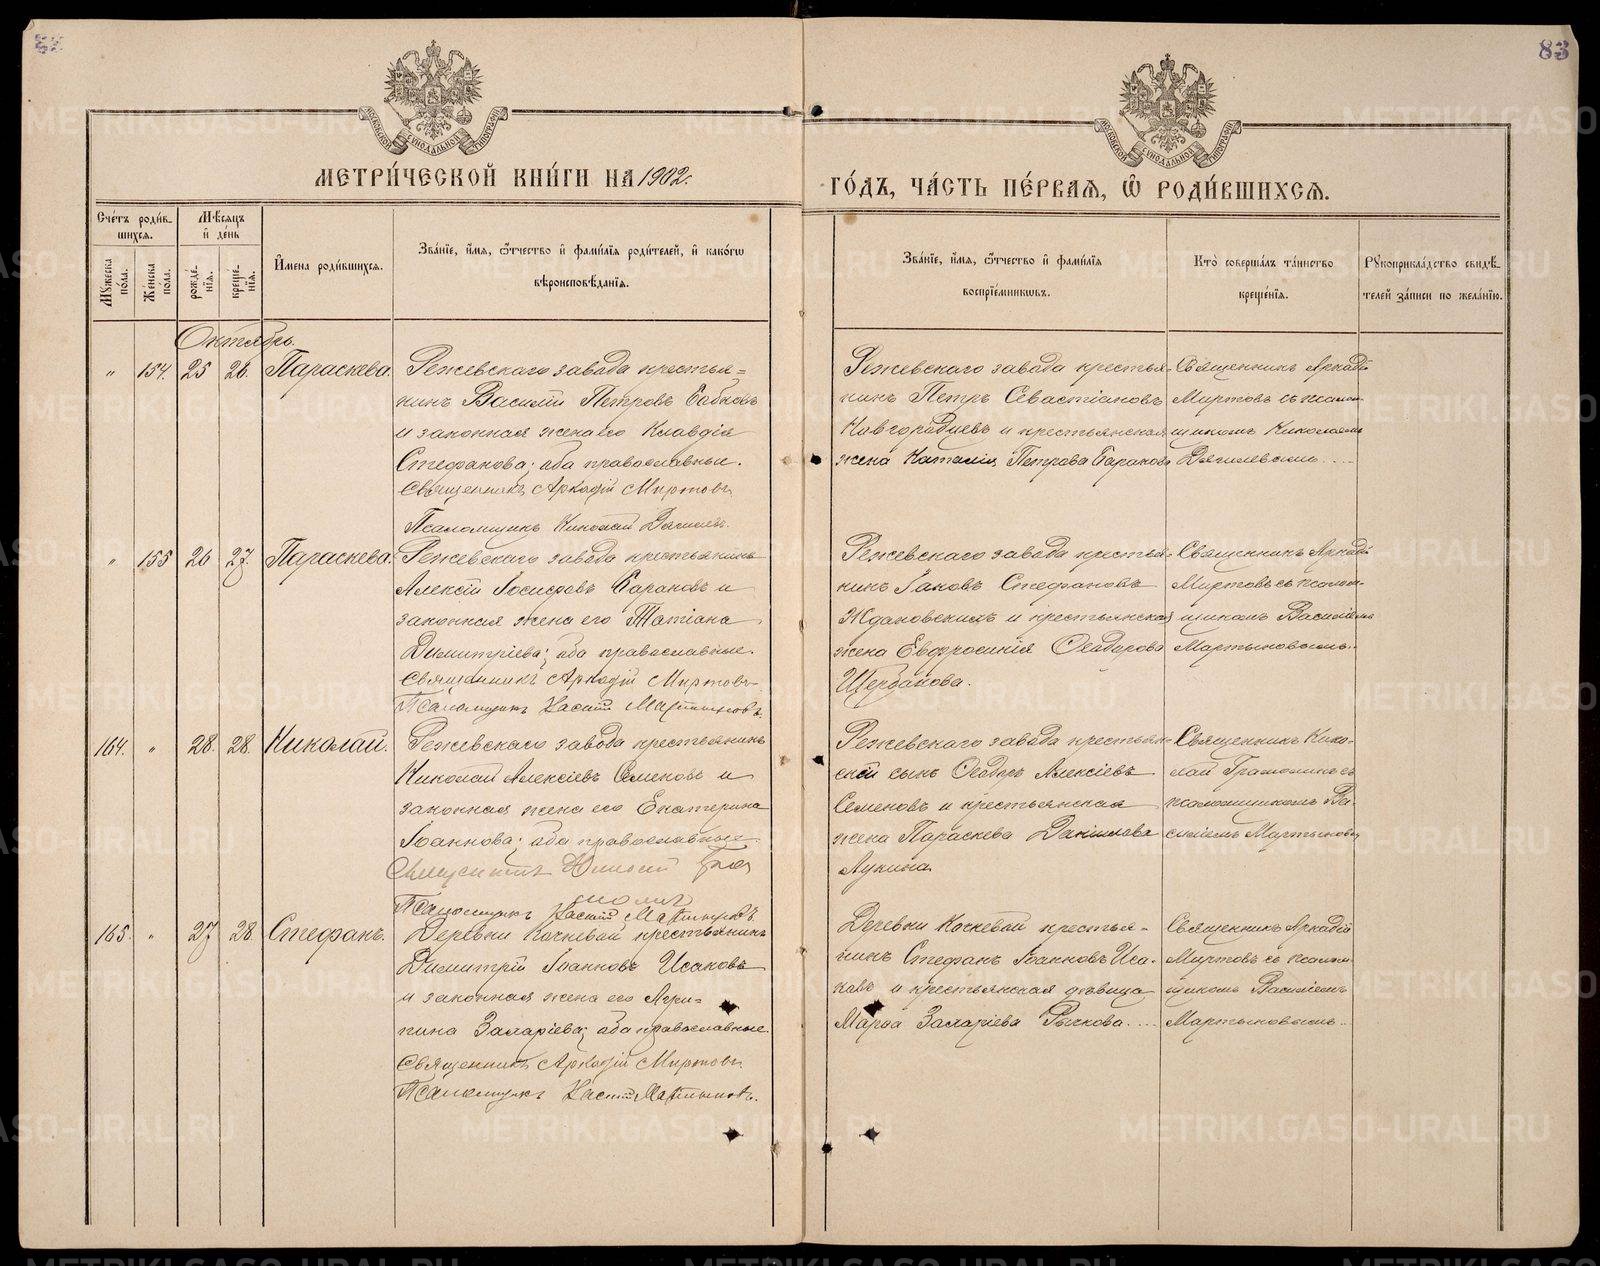 83
МЕТРИ́ЧЕСКОЙ КНИ́ГИ НА 1902 г.
ГО́ДЪ, ЧА́СТЬ ПЕ́РВАѦ, Ѽ РОДИ́ВШИХСѦ.
МОСКОВСКОЙ СѴНОДАЛЬНОЙ ТИПОГРАФІИ
МОСКОВСКОЙ СѴНОДАЛЬНОЙ ТИПОГРАФІИ
Сче́тъ роди́в-
шихсѧ.
Мꙋ́жеска по́ла.
Же́нска по́ла.
Мѣ́сѧцъ
и҆ де́нь
рожде́-нїѧ.
креще́-нїѧ.
И҆мена роди́вшихсѧ.
Зва́нїе, и҆́мѧ, ѻ҆́тчество и҆ фами́лїѧ роди́телей, и҆ како́гѡ
вѣроисповѣ́данїѧ.
Зва́нїе, и҆́мѧ, ѻ҆́тчество и҆ фами́лїѧ
воспрїе́мникѡвъ.
Кто̀ соверша́лъ та́инство
креще́нїѧ.
Рꙋкоприкла́дство свидѣ́-
телей за́писи по жела́нїю.
Октябрь.
" 154. 25 26. Параскева.
Режевскаго завода крестья=
нинъ Василій Петровъ Бабковъ
и законная жена его Клавдія
Стефанова; оба православные.
Священникъ Аркадій Миртовъ
Псаломщикъ Николай
Режевскаго завода крестья-
нинъ Петръ Севастіановъ
Новгородцевъ и крестьянская
жена Наталія Петрова Баранова
Священникъ Аркадій
Миртовъ съ псалом-
щикомъ Николаемъ
Дягилевымъ....
" 155 26 27. Параскева.
Режевскаго завода крестьянинъ
Алексій Іосифовъ Барановъ и
законная жена его Татіана
Димитріева; оба православные.
Священникъ Аркадій Миртовъ
Псаломщикъ Василій Мартыновъ.
Режевскаго завода крестья-
нинъ Іаковъ Стефановъ
Ждановскихъ и крестьянская
жена Евфросинія Ѳеодорова
Щербакова.
Священникъ Аркадій
Миртовъ съ псалом-
щикомъ Василіемъ
Мартыновымъ.
164. " 28. 28. Николай.
Режевскаго завода крестьянинъ
Николай Алексіевъ Семеновъ и
законная жена его Екатерина
Іоаннова; оба православные
Священникъ Николай
Псаломщикъ Василій Мартыновъ.
Режевскаго завода крестьян-
скій сынъ Ѳеодоръ Алексіевъ
Семеновъ и крестьянская
жена Параскева Даніилова
Лукина
Священникъ Нико-
лай съ
псаломщикомъ Ва-
силіемъ Мартыновымъ
165. " 27 28. Стефанъ.
Деревни Кочневой крестьянинъ
Димитрій Іоанновъ Исаковъ
и законная жена его Агри-
пина Захаріева; оба православные.
Священникъ Аркадій Миртовъ
Псаломщикъ Василій Мартыновъ.
Деревни Кочневой крестья-
нинъ Стефанъ Іоанновъ Иса-
ковъ и крестьянская дѣвица
Марѳа Захаріева Рычкова....
Священникъ Аркадій
Миртовъ съ псалом-
щикомъ Василіемъ
Мартыновымъ..
METRIKI.GASO-URAL.RU